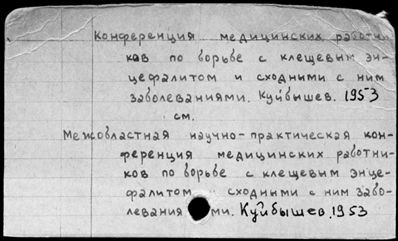 Конференция медицинских работни
ков по борьбе с клещевым эн-
цефалитом и сходными с ним
заболеваниями. Куйбышев. 1953
см.
Межобластная научно-практическая кон-
ференция медицинских работни-
ков по борьбе с клещевым энце-
фалитом сходными с ним забо-
левания ми. Куйбышев. 1953